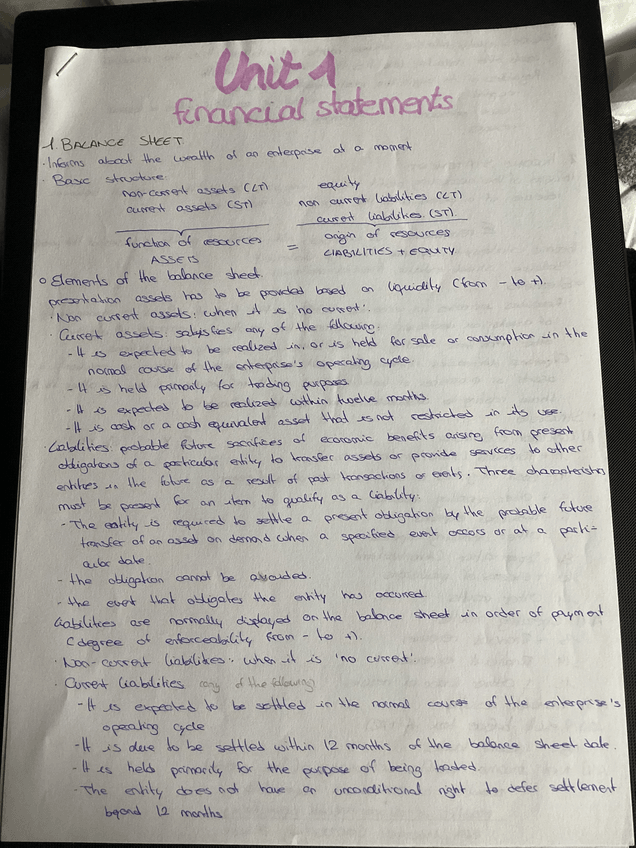 Unit 1
financial statements
1. BALANCE SHEET
· Informs about the wealth of an enterprise at a moment
· Basic structure:
non-current assets (LT) equity
current assets (ST) non current liabilities (LT)
current liabilities (ST).
function of resources = origin of resources
ASSETS LIABILITIES + EQUITY
o Elements of the balance sheet.
presentation assets has to be provided based on liquidity (from - to +).
· Non current assets: when it is 'no current'.
· Current assets: satisfies any of the following.
- It is expected to be realized in, or is held for sale or consumption in the
normal course of the enterprise's operating cycle.
- It is held primarily for trading purposes
- It is expected to be realized within twelve months.
- It is cash or a cash equivalent asset that is not restricted in its use.
· Liabilities: probable future sacrifices of economic benefits arising from present
obligations of a particular entity to transfer assets or provide services to other
entities in the future as a result of past transactions or events. Three characteristics
must be present for an item to qualify as a liability:
- The entity is required to settle a present obligation by the probable future
transfer of an asset on demand when a specified event occurs or at a parti=
cular date.
- the obligation cannot be avoided.
- the event that obligates the entity has occurred.
Liabilities are normally displayed on the balance sheet in order of payment
(degree of enforceability from - to +).
· Non-current liabilities: when it is 'no current'.
· Current liabilities (any of the following)
- It is expected to be settled in the normal course of the enterprise's
operating cycle
- It is due to be settled within 12 months of the balance sheet date.
- It is held primarily for the purpose of being traded.
- The entity does not have an unconditional right to defer settlement
beyond 12 months